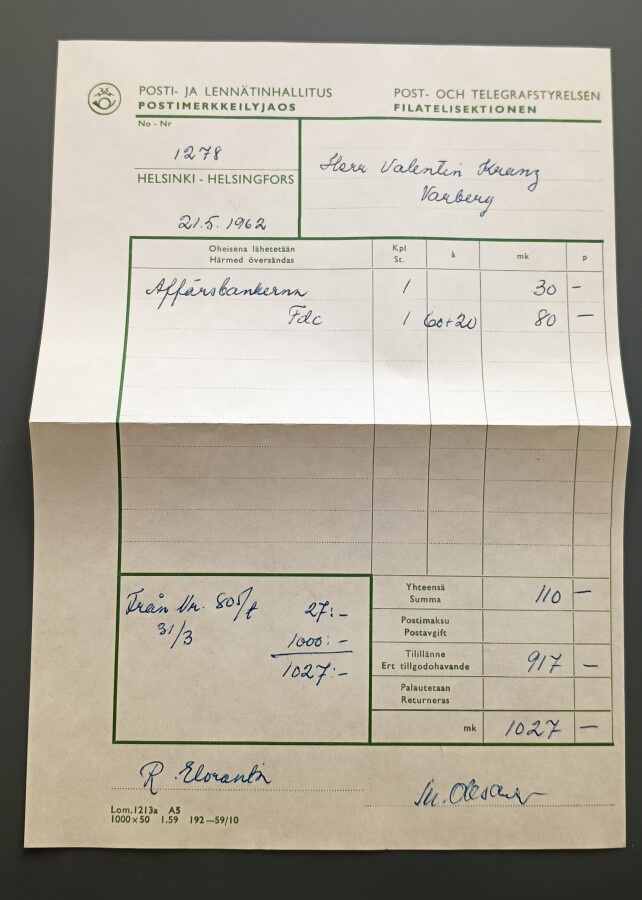 POSTI- JA LENNÄTINHALLITUS
POSTIMERKKEILYJAOS
POST- OCH TELEGRAFSTYRELSEN
FILATELISEKTIONEN
No - Nr
1278
HELSINKI - HELSINGFORS
21.5.1962
Herr Valentin Kranz
Varberg
Oheisena lähetetään Kpl à mk p
Härmed översändas St.
Affärsbankerna 1 30 -
Fdc 1 60+20 80 -
Från Nr. 805/t 27:-
31/3 1000:-
1027:-
Yhteensä
Summa 110 -
Postimaksu
Postavgift
Tilillänne
Ert tillgodohavande 917 -
Palautetaan
Returneras
mk 1027 -
R. Eloranta
Lom. 1213a A5
1000×50 1.59 192-59/10